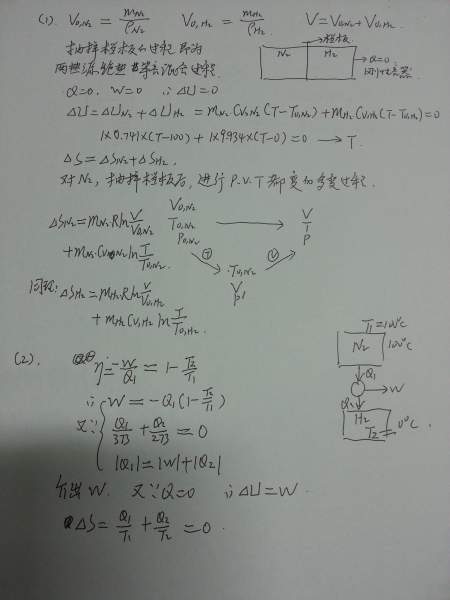 (1). V₀,N₂ = m_N₂/ρ_N₂  V₀,H₂ = m_H₂/ρ_H₂  V = V₀,N₂ + V₀,H₂
抽掉档板的过程即为
档板
N₂ H₂
Q=0
刚性容器
Q=0. W=0 ∴ΔU=0
ΔU=ΔU_N₂+ΔU_H₂ = m_N₂·C_V,N₂(T-T₀,N₂)+m_H₂C_V,H₂(T-T₀,H₂)=0
1×0.741×(T-100) + 1×9.934×(T-0)=0 → T
ΔS=ΔS_N₂+ΔS_H₂.
对N₂, 抽掉档板后, 进行P.V.T都变的多变过程.
ΔS_N₂=m_N₂Rln V/V₀,N₂
+m_N₂·C_V,N₂ln T/T₀,N₂
V₀,N₂ T₀,N₂ P₀,N₂
V T P
① ②
T₀,N₂ V P'
同理: ΔS_H₂=m_H₂Rln V/V₀,H₂
+ m_H₂C_V,H₂ ln T/T₀,H₂
(2).
η=-W/Q₁ = 1-T₂/T₁
∴ W=-Q₁(1-T₂/T₁)
又∵ Q₁/373 + Q₂/273 = 0
|Q₁|=|W|+|Q₂|
T₁=100°C
N₂ 100°C
Q₁
W
H₂
T₂=0°C
W. 又∵Q=0 ∴ΔU=W.
ΔS= Q₁/T₁ + Q₂/T₂ =0.